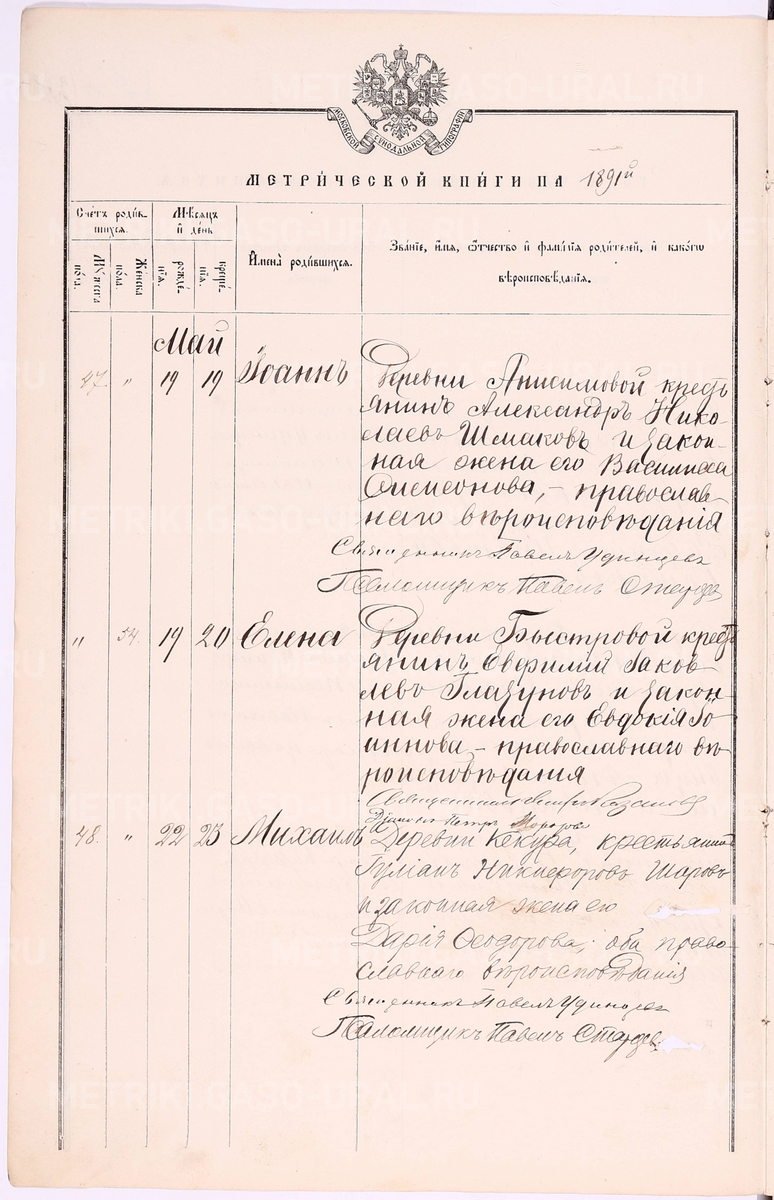 МОСКОВСКОЙ СѴНОДАЛЬНОЙ ТИПОГРАФІИ
МЕТРИ́ЧЕСКОЙ КНИ́ГИ НА 1891й
Сче́тъ роди́вшихся.
Мѣсяцъ и́ де́нь
И҆мена̀ роди́вшихся.
Зва́нїе, и҆́мѧ, ѻ҆́тчество и҆ фами́лїѧ роди́телей, и҆ како́гѡ вѣроисповѣ́данїѧ.
Мꙋ́жеска по́ла.
Же́нска по́ла.
рожде́нїѧ.
креще́нїѧ.
Май
47. " 19 19 Іоаннъ Деревни Анисимовой кресть
янинъ Александръ Нико-
лаевъ Шмаковъ и закон-
ная жена его Василисса
Симеонова, - православ-
наго вѣроисповѣданія
Священникъ Павелъ Удинцевъ
Псаломщикъ Павелъ
" 54. 19 20 Елена Деревни Быстровой кресть
янинъ Евфимій Іаков-
левъ Глазуновъ и закон-
ная жена его Евдокія Іо-
аннова, - православнаго вѣ-
роисповѣданія
Священникъ
Діаконъ Петръ
48. " 22 23 Михаилъ Деревни Кекура, крестьянинъ
Іуліанъ Никифоровъ Шаровъ
и законная жена его
Дарія Ѳеодорова, оба право-
славнаго вѣроисповѣданія
Священникъ Павелъ Удинцевъ
Псаломщикъ Павелъ
METRIKI.GASO-URAL.RU